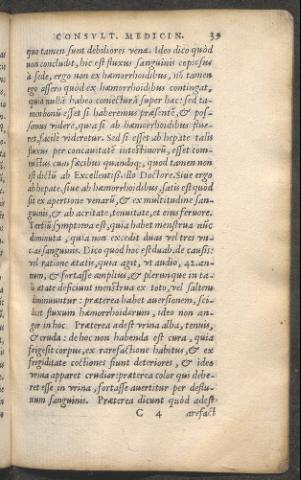 CONSVLT. MEDICIN. 39
quo tamen sunt debiliores venæ. Ideo dico quòd
non concludit, hic est fluxus sanguinis copiosus
à sede, ergo non ex hæmorrhoidibus, nã tamen
ego assero quòd ex hæmorrhoidibus contingat,
quia nullã habeo coniecturã super hac: sed ta-
men bonũ esset si haberemus præsentē, & pos-
semus videre, quia si ab hæmorrhoidibus flue-
ret, facilè videretur. Sed si esset ab hepate talis
fluxus per concauitatē intestinorũ, esset com-
mictus cum fæcibus quandoq;, quod tamen non
est dictũ ab Excellentiß. illo Doctore. Siue ergo
ab hepate, siue ab hæmorrhoidibus, satis est quòd
sit ex apertione venarũ, & ex multitudine san-
guinis, & ab acritate, tenuitate, et eius feruore.
Tertiũ symptoma est, quia habet menstrua nũc
diminuta, quia non excedit duas vel tres vn-
cias sanguinis. Dico quod hoc est duab. de causis:
ratione ætatis, quia agit, vt audio, 42. an-
num, & fortasse amplius, & plerunque in ta-
li ætate deficiunt menstrua ex toto, vel saltem
diminuuntur: præterea habet auersionem, sci-
licet fluxum hæmorrhoidarum, ideo non an-
gor in hoc. Præterea adest vrina alba, tenuis,
& cruda: de hoc non habenda est cura, quia
frigescit corpus, ex rarefactione habitus, & ex
frigiditate coctiones sunt deteriores, & ideo
vrina apparet crudior: præterea color qui debe-
ret esse in vrina, fortasse auertitur per deflu-
uium sanguinis. Præterea dicunt quòd adest
C 4 arefact